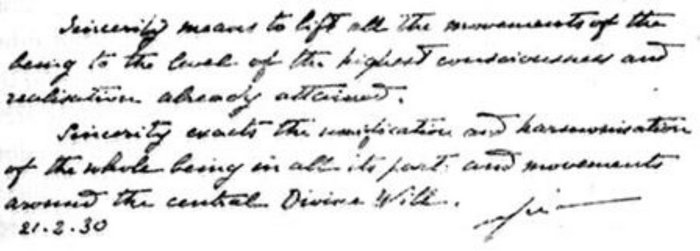 Sincerity means to lift all the movements of the
being to the level of the highest consciousness and
realisation already attained.
Sincerity exacts the unification and harmonisation
of the whole being in all its part and movements
around the central Divine Will.
21.2.30